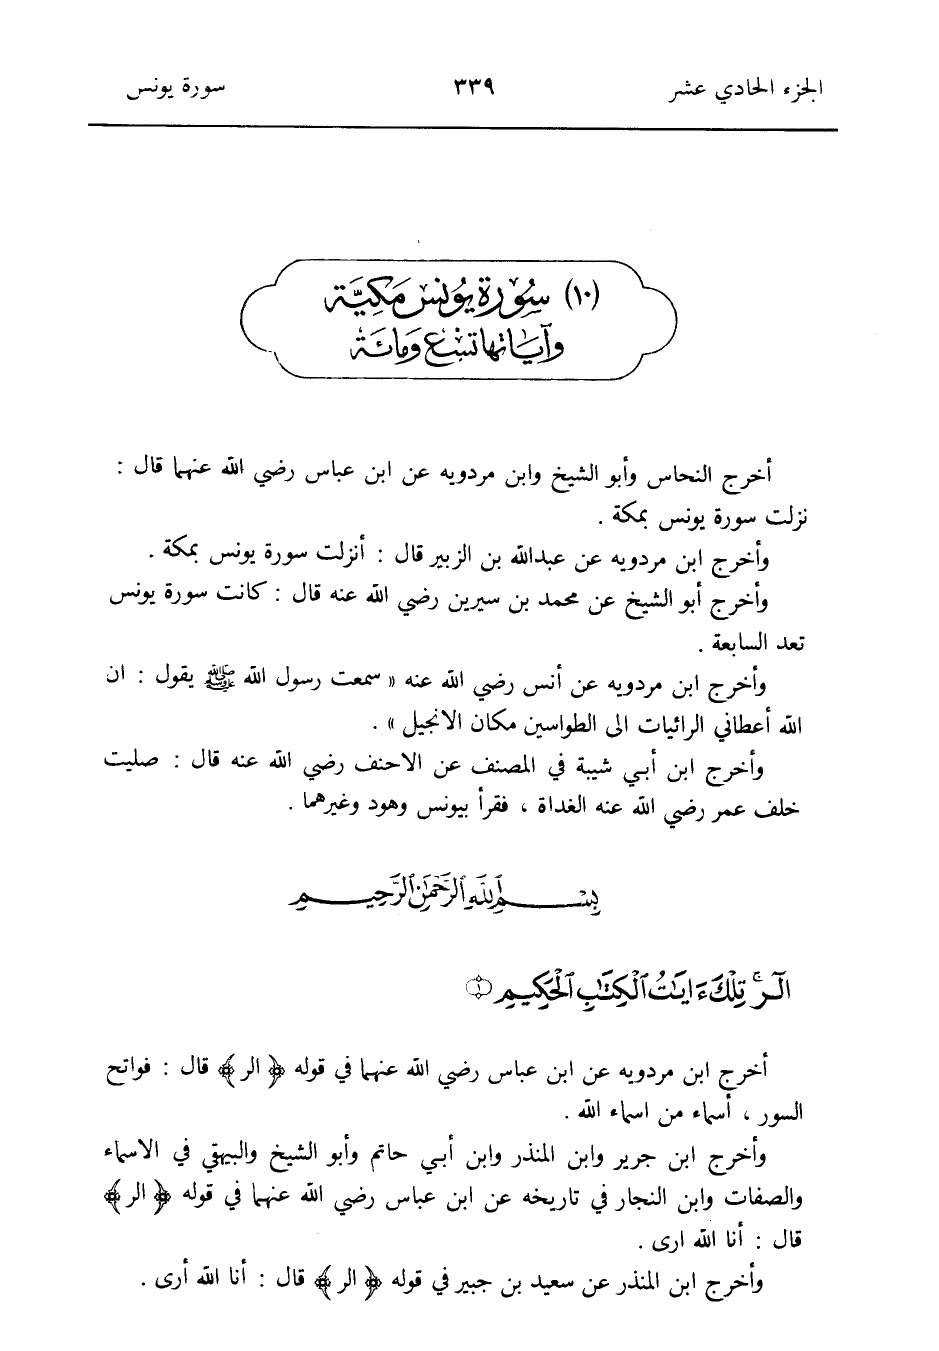 الجزء الحادي عشر ٣٣٩ سورة يونس
(١٠) سُورَة يُونس مَكيَّة
وآيَاتها تسْع وَمائَة
أخرج النحاس وأبو الشيخ وابن مردويه عن ابن عباس رضي الله عنهما قال :
نزلت سورة يونس بمكة .
وأخرج ابن مردويه عن عبدالله بن الزبير قال : أنزلت سورة يونس بمكة .
وأخرج أبو الشيخ عن محمد بن سيرين رضي الله عنه قال : كانت سورة يونس
تعد السابعة .
وأخرج ابن مردويه عن أنس رضي الله عنه « سمعت رسول الله ﷺ يقول : ان
الله أعطاني الرائيات الى الطواسين مكان الانجيل » .
وأخرج ابن أبي شيبة في المصنف عن الاحنف رضي الله عنه قال : صليت
خلف عمر رضي الله عنه الغداة ، فقرأ بيونس وهود وغيرهما .
بِسْمِ ٱللَّهِ ٱلرَّحْمَٰنِ ٱلرَّحِيمِ
الٓرۚ تِلْكَ ءَايَٰتُ ٱلْكِتَٰبِ ٱلْحَكِيمِ ١
أخرج ابن مردويه عن ابن عباس رضي الله عنهما في قوله ﴿ الر ﴾ قال : فواتح
السور ، أسماء من اسماء الله .
وأخرج ابن جرير وابن المنذر وابن أبي حاتم وأبو الشيخ والبيهقي في الاسماء
والصفات وابن النجار في تاريخه عن ابن عباس رضي الله عنهما في قوله ﴿ الر ﴾
قال : أنا الله ارى .
وأخرج ابن المنذر عن سعيد بن جبير في قوله ﴿ الر ﴾ قال : أنا الله أرى .